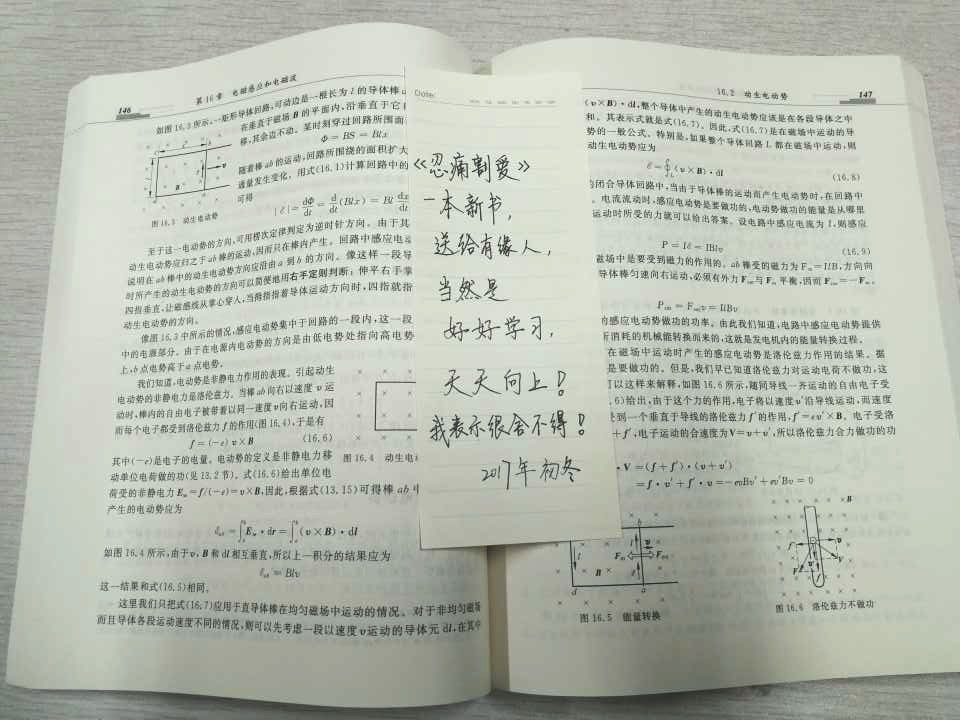 146
第16章 电磁感应和电磁波
如图16.3所示,一矩形导体回路,可动边是一根长为l的导体棒
在垂直于磁场B的平面内,沿垂直于它
移,其余边不动。某时刻穿过回路所围面
Φ = BS = Blx
随着棒ab的运动,回路所围绕的面积扩大
通量发生变化。用式(16.1)计算回路中的
可得
|ℰ| = dΦ/dt = d/dt (Blx) = Bl dx/dt
图16.3 动生电动势
至于这一电动势的方向,可用楞次定律判定为逆时针方向。由于其
动生电动势应归之于ab棒的运动,因而只在棒内产生。回路中感应电
说明在ab棒中的动生电动势方向应沿由a到b的方向。像这样一段导
时所产生的动生电动势的方向可以简便地用右手定则判断:伸平右手掌
四指垂直,让磁感线从掌心穿入,当拇指指着导体运动方向时,四指就指
动生电动势的方向。
像图16.3中所示的情况,感应电动势集中于回路的一段内,这一段
中的电源部分。由于在电源内电动势的方向是由低电势处指向高电势
上,b点电势高于a点电势。
我们知道,电动势是非静电力作用的表现。引起动生
电动势的非静电力是洛伦兹力。当棒ab向右以速度v运
动时,棒内的自由电子被带着以同一速度v向右运动,因
而每个电子都受到洛伦兹力f的作用(图16.4),于是有
f = (−e) v×B (16.6)
其中(−e)是电子的电量。电动势的定义是非静电力移
图16.4 动生电
动单位电荷做的功(见13.2节)。式(16.6)给出单位电
荷受的非静电力Eₙₑ = f/(−e) = v×B,因此,根据式(13.15)可得棒ab中
产生的电动势应为
ℰab = ∫ₐᵇ Eₙₑ · dr = ∫ₐᵇ (v×B) · dl
如图16.4所示,由于v,B和dl相互垂直,所以上一积分的结果应为
ℰab = Blv
这一结果和式(16.5)相同。
这里我们只把式(16.7)应用于直导体棒在均匀磁场中运动的情况。对于非均匀磁场
而且导体各段运动速度不同的情况,则可以先考虑一段以速度v运动的导体元dl,在其中
Date:
《忍痛割爱》
一本新书,
送给有缘人,
当然是
好好学习,
天天向上!
我表示很舍不得!
2017年初冬
16.2 动生电动势
147
(v×B) · dl,整个导体中产生的动生电动势应该是在各段导体之中
和。其表示式就是式(16.7)。因此,式(16.7)是在磁场中运动的导
势的一般公式。特别是,如果整个导体回路L都在磁场中运动,则
动生电动势应为
ℰ = ∮L (v×B) · dl (16.8)
的闭合导体回路中,当由于导体棒的运动而产生电动势时,在回路中
。电流流动时,感应电动势是要做功的,电动势做功的能量是从哪里
运动时所受的力就可以给出答案。设电路中感应电流为I,则感应
P = Iℰ = IBlv (16.9)
磁场中是要受到磁力的作用的。ab棒受的磁力为Fm = IlB,方向向
导体棒匀速向右运动,必须有外力Fext与Fm平衡,因而Fext = −Fm。
Pext = Fextv = IlBv
的感应电动势做功的功率。由此我们知道,电路中感应电动势提供
所消耗的机械能转换而来的,这就是发电机内的能量转换过程。
在磁场中运动时产生的感应电动势是洛伦兹力作用的结果。据
是要做功的。但是,我们早已知道洛伦兹力对运动电荷不做功,这
可以这样来解释,如图16.6所示,随同导线一齐运动的自由电子受
.6)给出,由于这个力的作用,电子将以速度v′沿导线运动,而速度
受到一个垂直于导线的洛伦兹力f′的作用,f′ = ev′×B。电子受洛
+f′,电子运动的合速度为V = v+v′,所以洛伦兹力合力做功的功
·V = (f+f′)·(v+v′)
= f·v′ + f′·v = −evBv′ + ev′Bv = 0
图16.5 能量转换
图16.6 洛伦兹力不做功